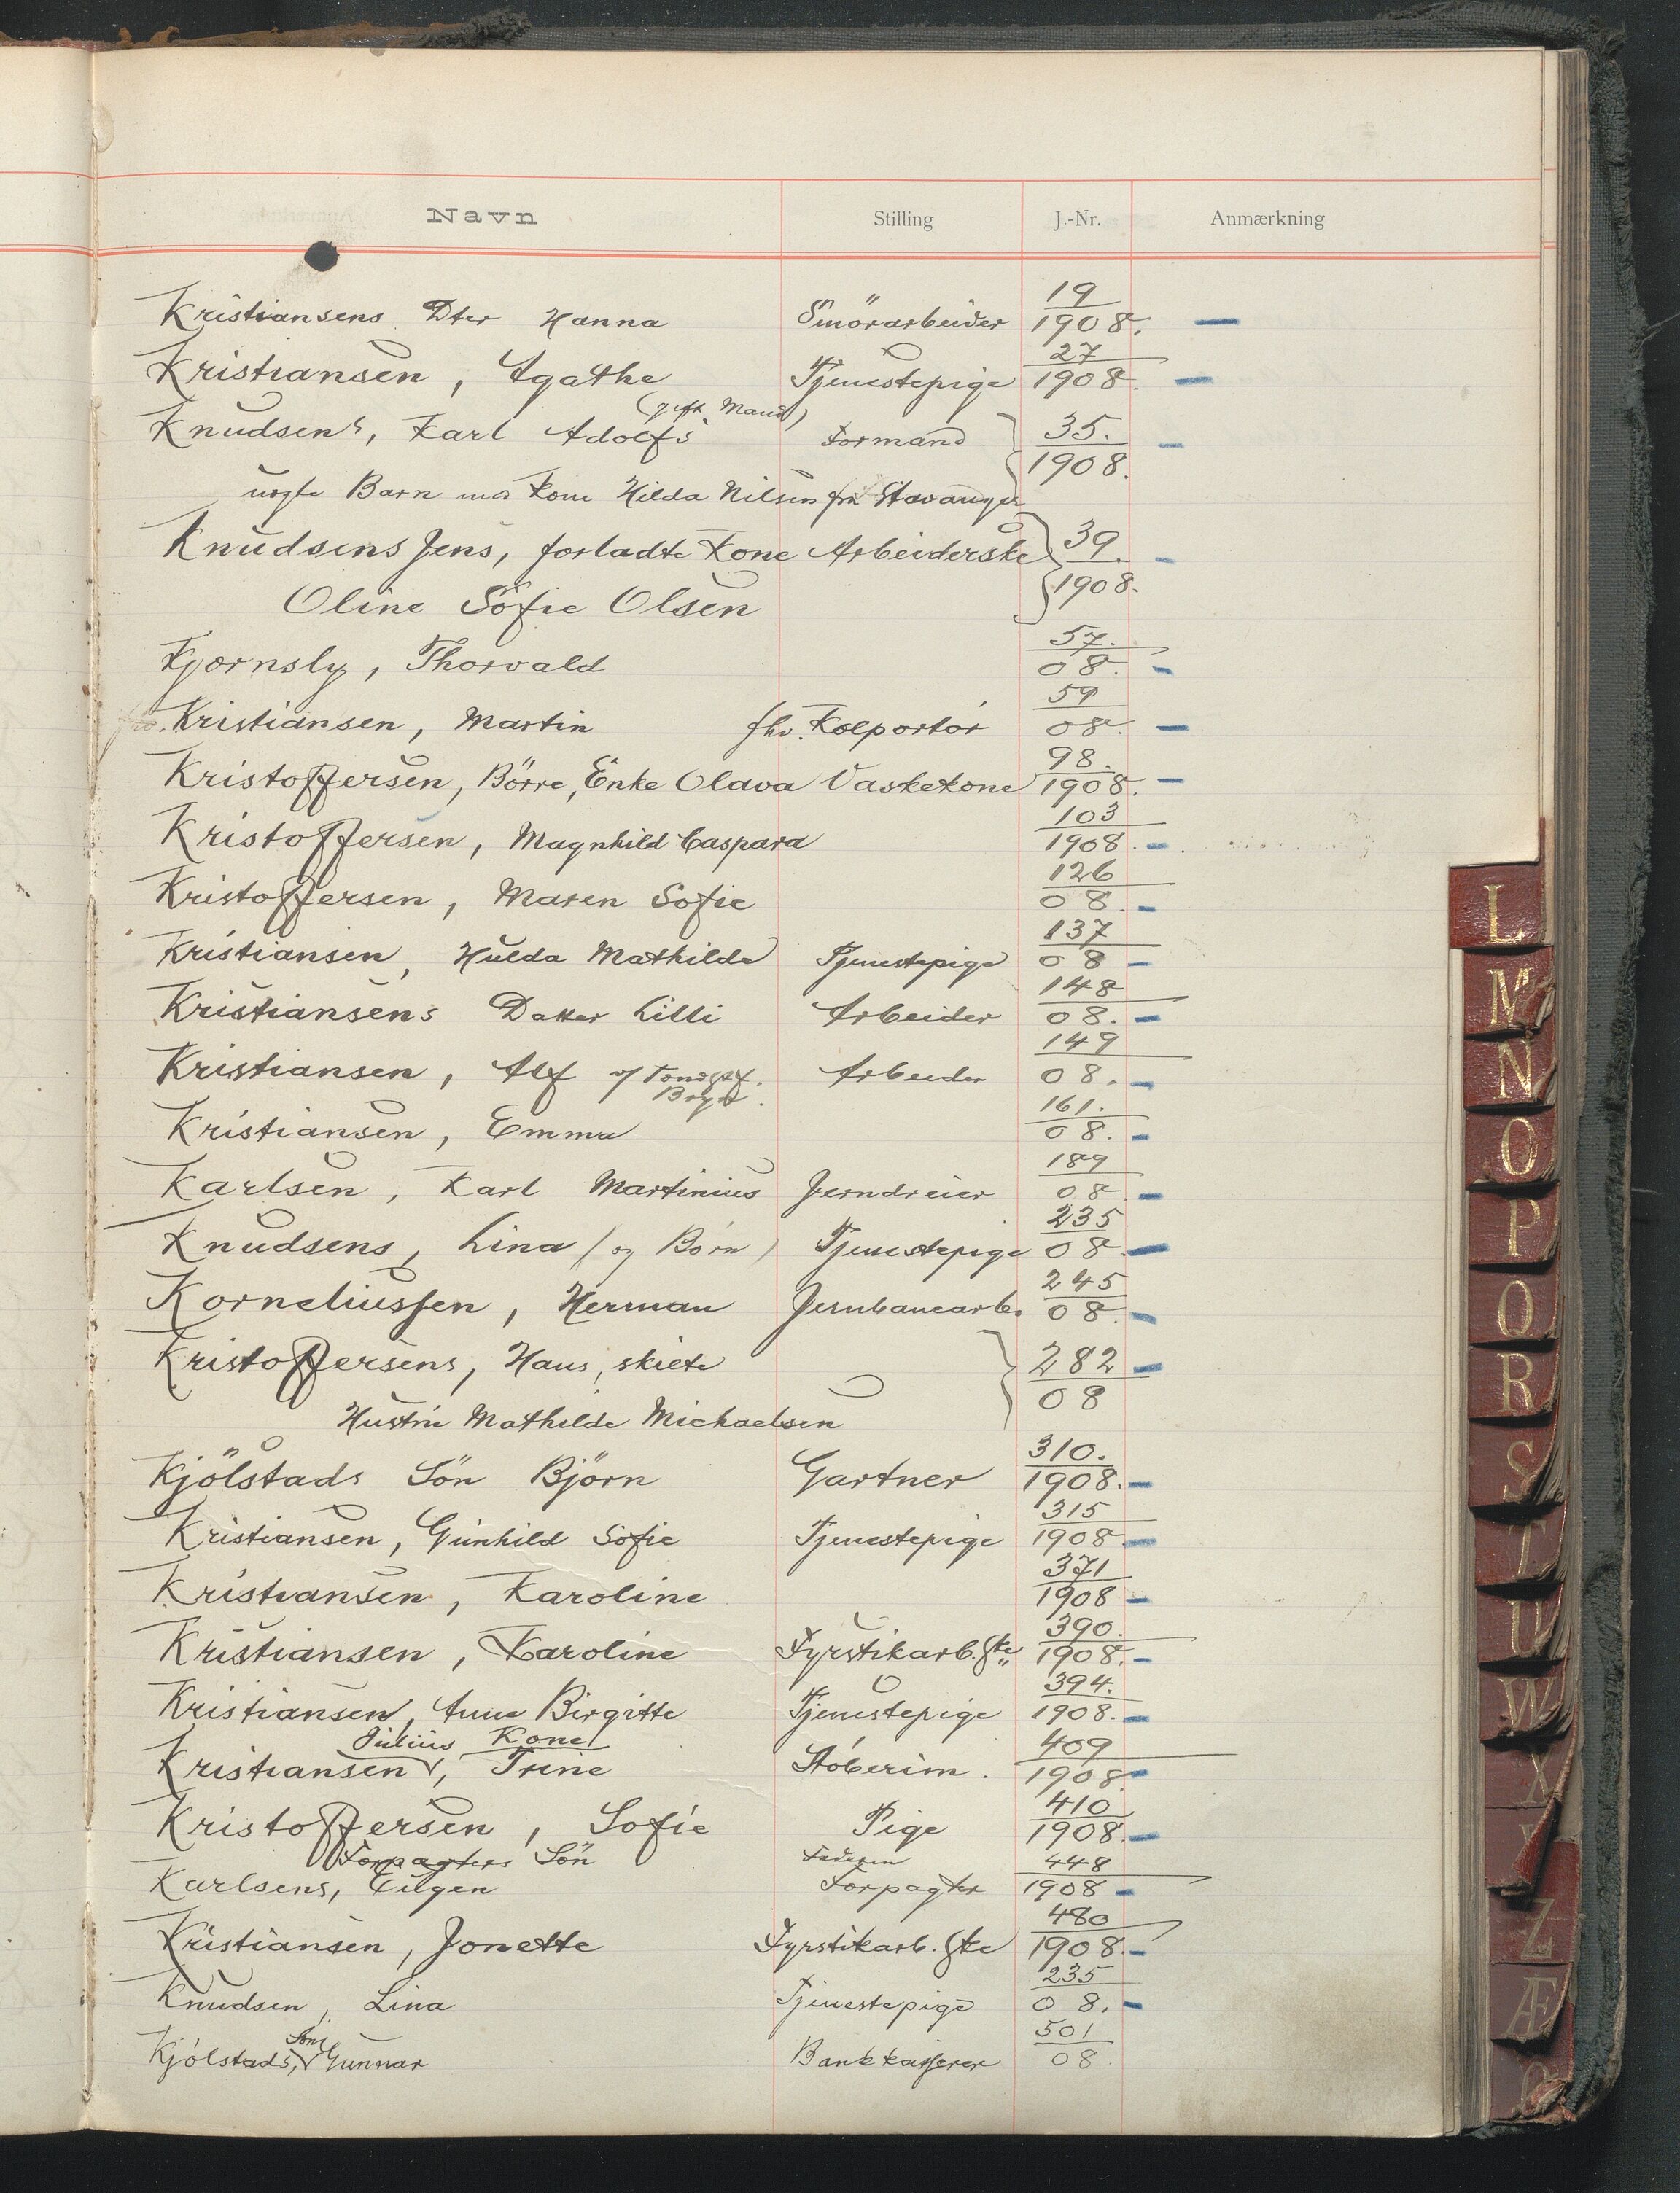 Navn Stilling J.-Nr. Anmærkning
Kristiansens Dter Hanna Smörarbeider 19/1908.
Kristiansen, Agathe Tjenestepige 27/1908.
(gift Mand)
Knudsens, Karl Adolfs Formand 35./1908.
uægte Barn med Kone Hilda Nilsen fra Stavanger
Knudsens Jens, forladte Kone Arbeiderske 39/1908.
Oline Sofie Olsen
Kjornsly, Thorvald 57./08.
Kristiansen, Martin fhv. Kolportör 59/08.
Kristoffersen, Börre, Enke Olava Vaskekone 98./1908.
Kristoffersen, Magnhild Caspara 103/1908.
Kristoffersen, Maren Sofie 126/08.
Kristiansen, Hulda Mathilde Tjenestepige 137/08
Kristiansens Datter Lilli Arbeider 148/08.
Kristiansen, Alf Arbeider 149/08.
Kristiansen, Emma 161./08.
Karlsen, Karl Martinius Jerndreier 189/08
Knudsens, Lina (og Börn) Tjenestepige 235/08
Korneliussen, Herman Jernbanearb. 245/08.
Kristoffersens, Hans, skilte 282/08
Hustru Mathilde Michaelsen
Kjölstads Sön Björn Gartner 310./1908.
Kristiansen, Gunhild Sofie Tjenestepige 315/1908
Kristiansen, Karoline 371/1908
Kristiansen, Karoline Fyrstikarb.ske 390./1908.
Kristiansen, Anne Birgitte Tjenestepige 394./1908.
Julius Kone
Kristiansen, Trine Stöberim. 409/1908.
Kristoffersen, Sofie Pige 410/1908.
Forpagters Sön Faderen
Karlsens, Eugen Forpagter 448/1908
Kristiansen, Jonette Fyrstikarb.ske 480/1908.
Knudsen, Lina Tjenestepige 235/08.
Söns
Kjölstads, Gunnar Bankkasserer 501/08.
L
M
N
O
P
Q
R
S
T
U
W
X
Y
Z
Æ
Ø